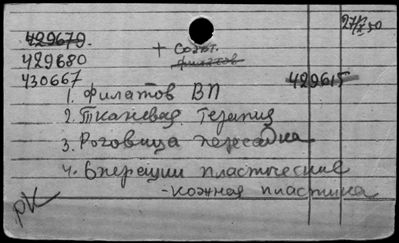 27/X 50
429679.
+ Сопт.
429680
филатов
430667
429615
1. Филатов ВП
2. Тканевая терапия
3. Роговица пересадка
4. Операции пластические
- кожная пластика
РК